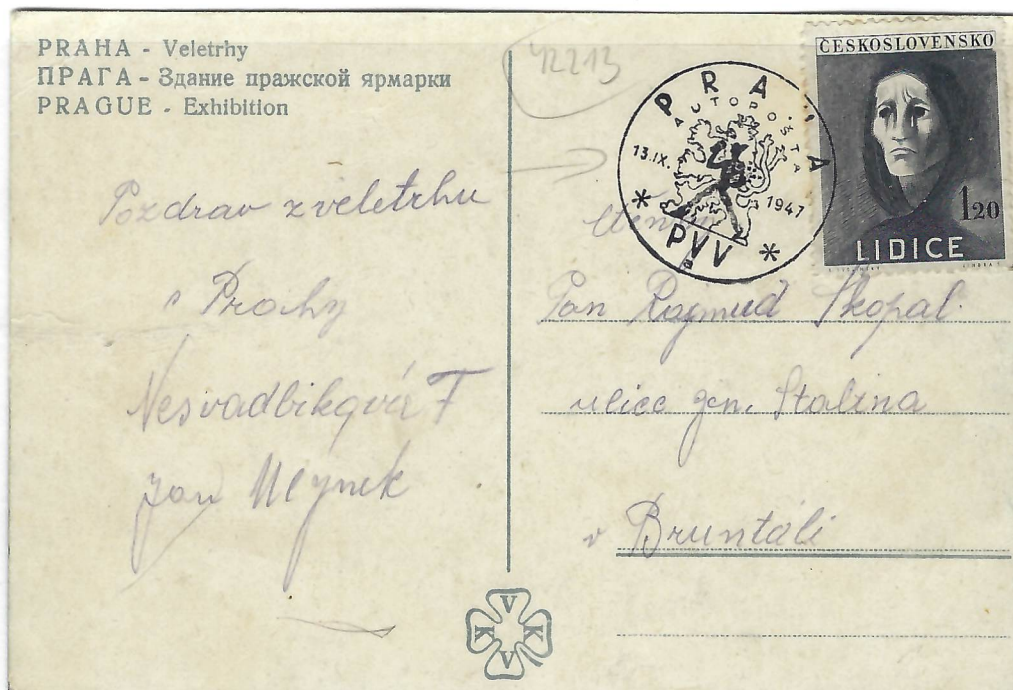 PRAHA - Veletrhy
ПРАГА - Здание пражской ярмарки
PRAGUE - Exhibition
Pozdrav z veletrhu
s Prahy
Jan Mlynek
42213
PRAHA
AUTOPOŠTA
13.IX.
1947
* PVV *
a
ČESKOSLOVENSKO
1 20
LIDICE
Pan Rajmud Skopal
ulice gen. Stalina
v Bruntáli
V K V K